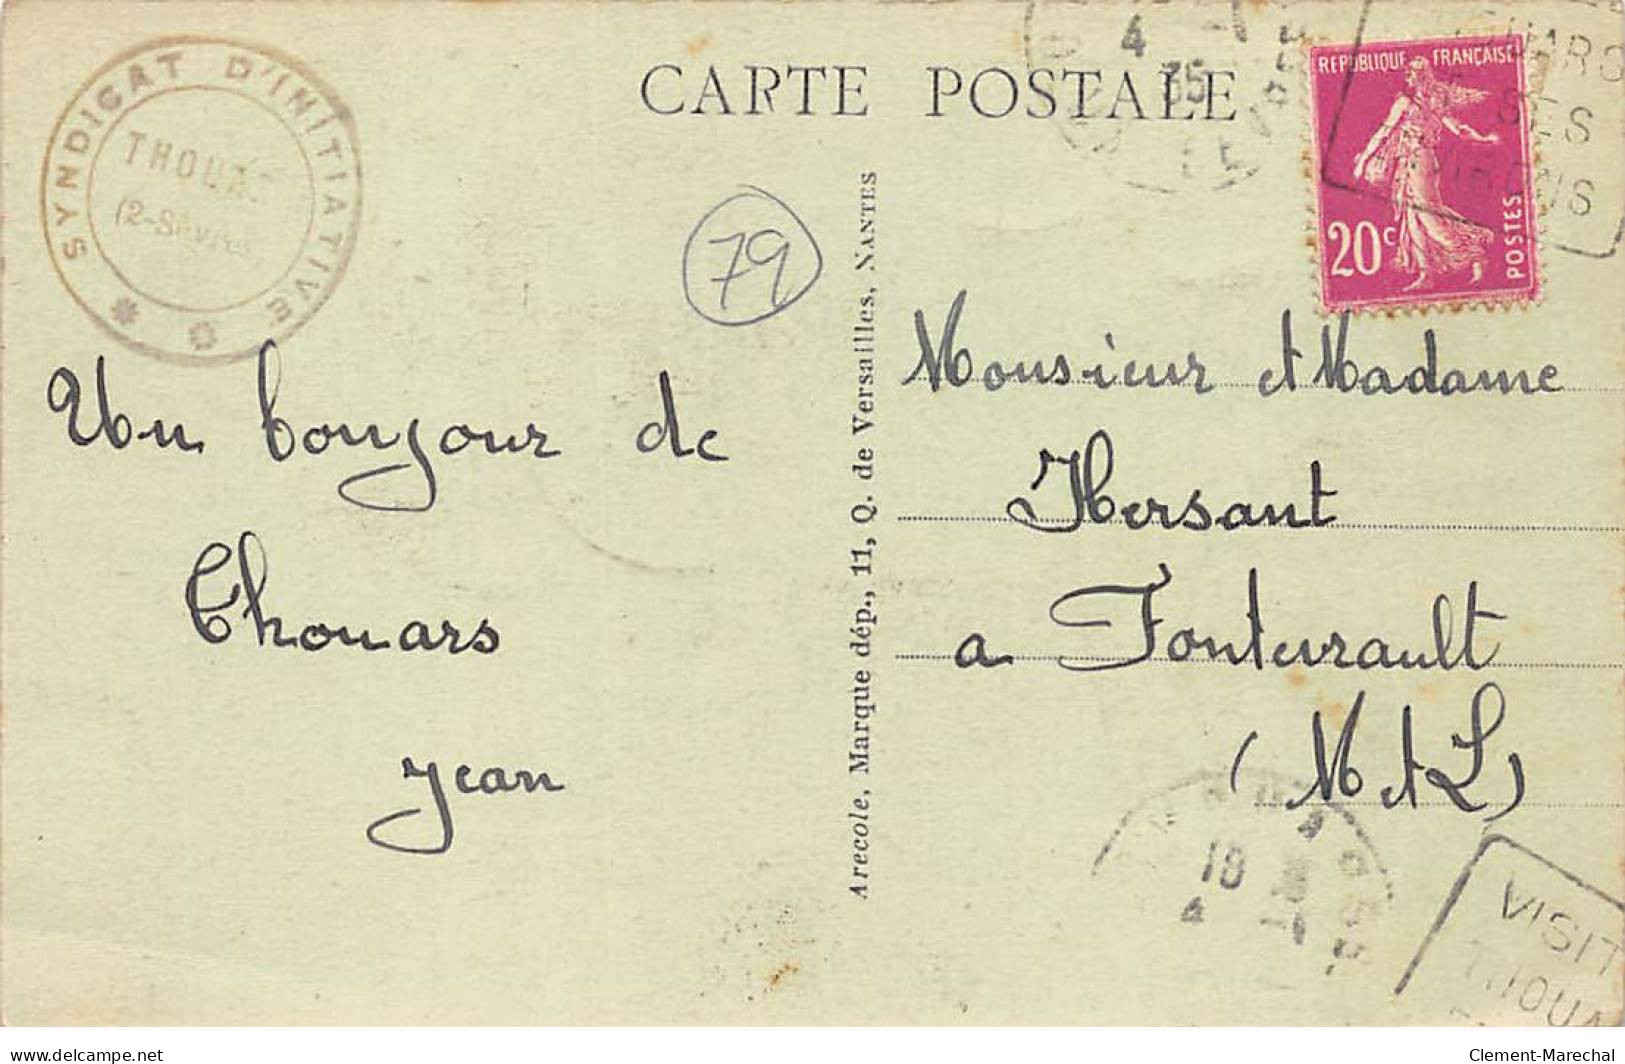 SYNDICAT D'INITIATIVE
THOUARS
(2-Sèvres)
CARTE POSTALE
4
35
REPUBLIQUE FRANÇAISE
20c
POSTES
SES
ENVIRONS
79
Un bonjour de
Thouars
Jean
Arecole, Marque dép., 11, Q. de Versailles, NANTES
Monsieur et Madame
Hersant
a Fontevrault
(M et L)
18
4
VISIT
THOUA
delcampe.net
Clement-Marechal